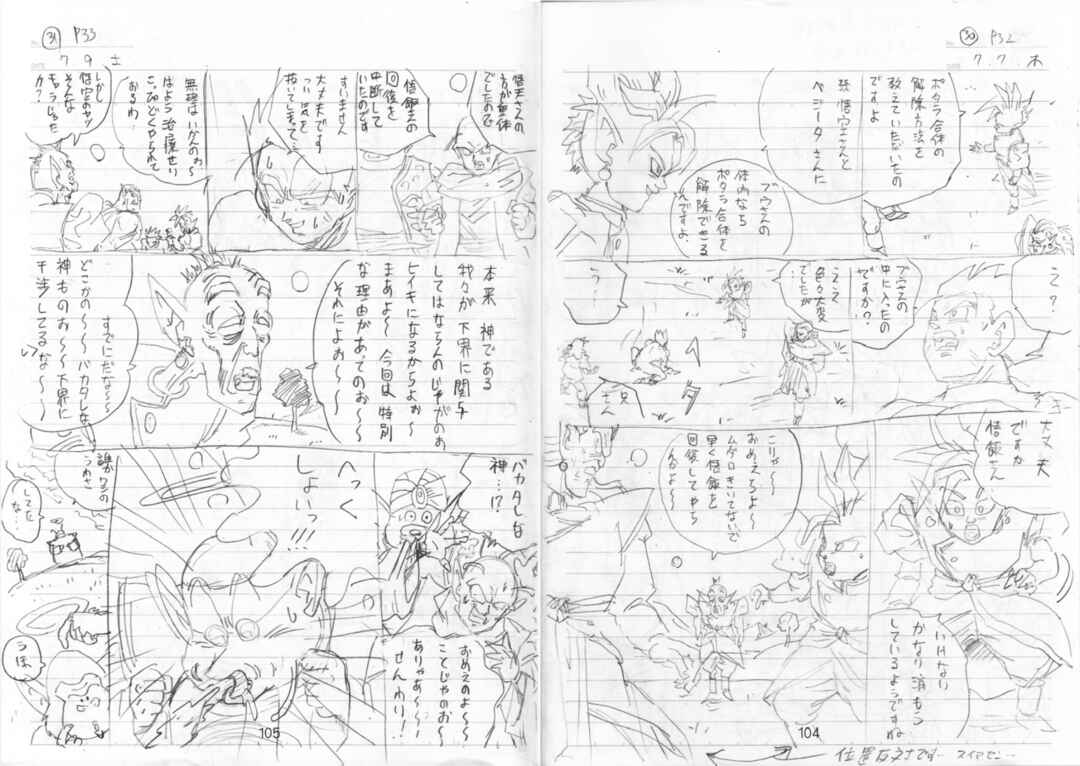 30 P32
7.7.木
ポタラ合体の
解除方法を
教えていただいたの
ですよ
孫悟空さんと
ベジータさんに
ブウさんの
体内なら
ポタラ合体を
解除できる
んですよ
え?
ブウさんの
中に入ったの
ですか??
ええ
色々大変
でしたが
う…
兄
さん
大丈夫
ですか
悟飯さん
いけない
かなり消もう
しているようですね
こりゃ〜〜
おめえたちよ〜
早く悟飯を
回復してやら
んかよ〜
104
位置
31 P33
7 9 土
悟天さんの
方が重体
でしたので
悟飯さんの
回復を
中断して
いたのです
すいません
大丈夫です
つい気を
抜いてしまって…
無理はいかんのぉ〜
はよう治療せい
こっぴどくやられて
おるわ
しかし
悟空のヤツ
そんな
キャラだった
か?
本来 神である
我々が下界に関与
してはならんのじゃがのぉ
ヒイキになるからよぉ〜
まあよ〜 今回は特別
な理由があってのお〜〜
それによぉ〜〜
すでにだな〜〜
どこかの〜〜バカタレな
神ものぉ〜〜下界に
干渉してるな〜〜い
バカタレな
神…!?
おめえのよ〜〜
ことじゃのお〜
ありゃあ〜〜
せんわり!
へっく
しょいっ!!
誰かの
うわさ
してた
な…
うほ
105